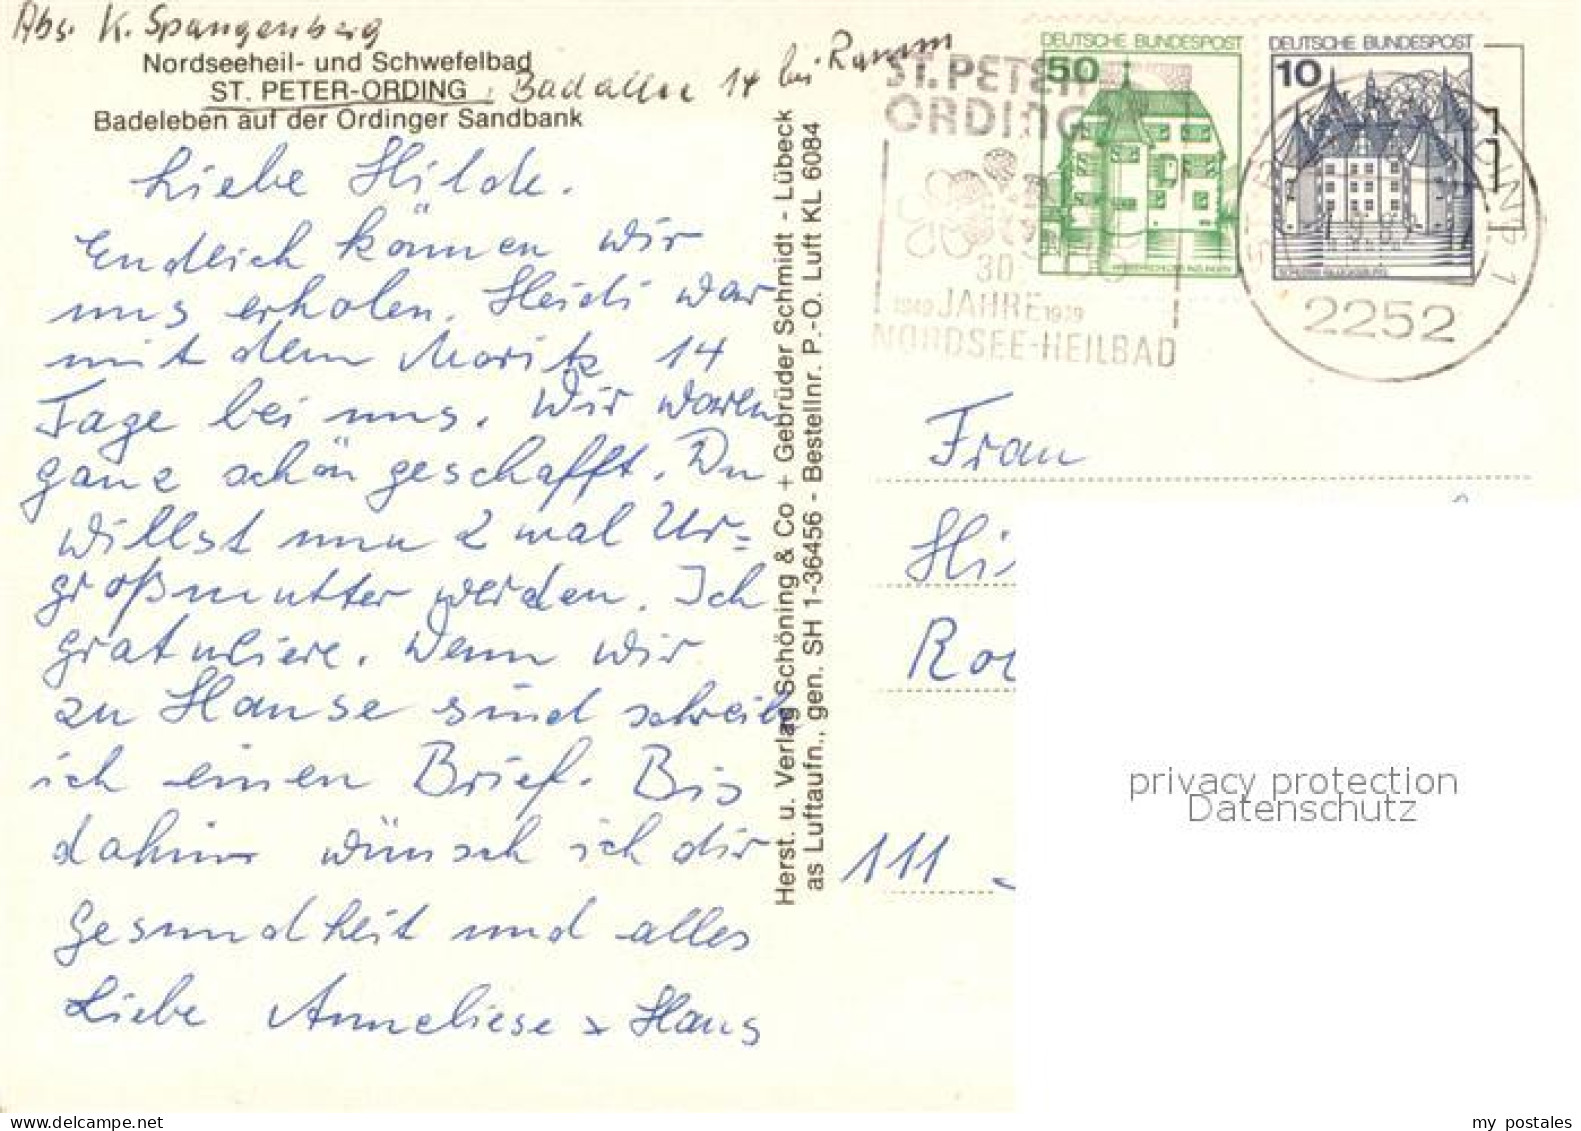 Abs. K. Spangenberg
Nordseeheil- und Schwefelbad
ST. PETER-ORDING, Badallee 14 bei Ramm
Badeleben auf der Ordinger Sandbank
Liebe Hilde.
Endlich können wir
uns erholen. Heidi war
mit dem Moritz 14
Tage bei uns. Wir waren
ganz schön geschafft. Du
willst nun 2 mal Ur=
großmutter werden. Ich
gratuliere. Wenn wir
zu Hause sind schreibe
ich einen Brief. Bis
dahin wünsch ich dir
Gesundheit und alles
Liebe Anneliese + Hans
Herst. u. Verlag Schöning & Co + Gebrüder Schmidt - Lübeck
as Luftaufn., gen. SH 1-36456 - Bestellnr. P.-O. Luft KL 6084
ST. PETER
ORDING
30
1949 JAHRE 1979
NORDSEE-HEILBAD
DEUTSCHE BUNDESPOST
50
DEUTSCHE BUNDESPOST
10
SCHLOSS GLÜCKSBURG
2252
Frau
111
privacy protection
Datenschutz
www.delcampe.net
my postales